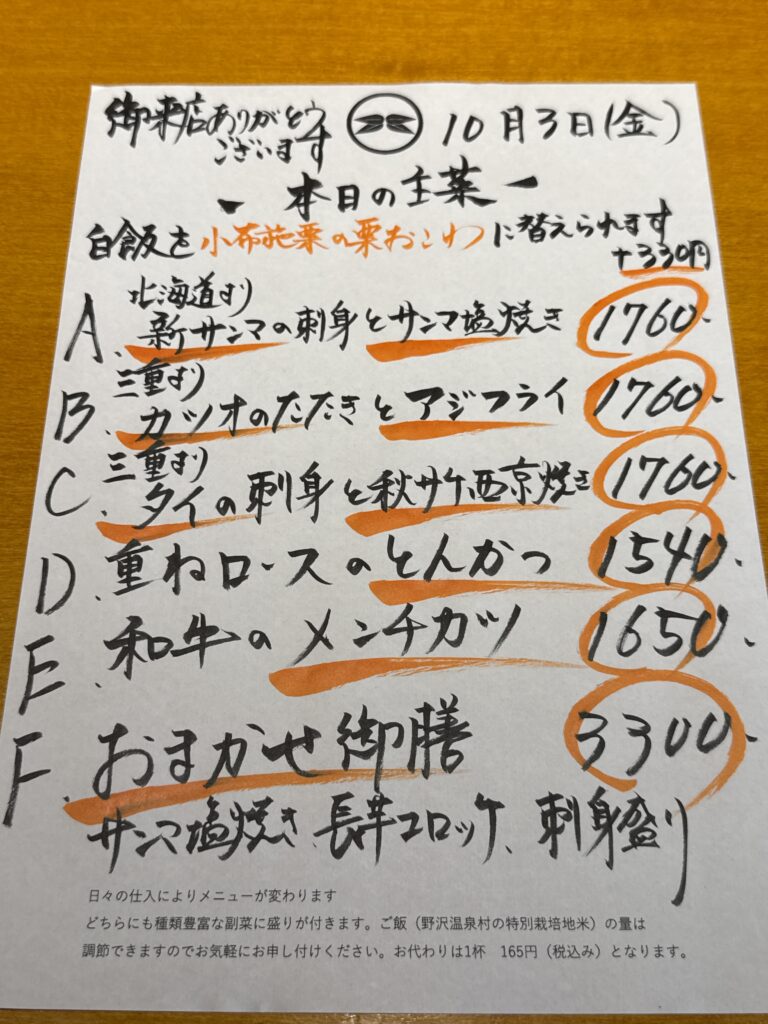 御来店ありがとう
ございます
10月3日(金)
ー 本日の主菜 ー
白飯を小布施栗の栗おこわに替えられます
+330円
北海道より
A、新サンマの刺身とサンマ塩焼き 1760、
三重より
B、カツオのたたきとアジフライ 1760、
三重より
C、タイの刺身と秋サケ西京焼き 1760、
D、重ねロースのとんかつ 1540、
E、和牛のメンチカツ 1650、
F、おまかせ御膳 3300、
サンマ塩焼き、長芋コロッケ、刺身盛り
日々の仕入によりメニューが変わります
どちらにも種類豊富な副菜に盛りが付きます。ご飯（野沢温泉村の特別栽培地米）の量は
調節できますのでお気軽にお申し付けください。お代わりは1杯 165円（税込み）となります。